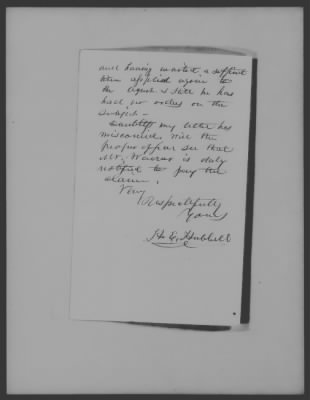 and having waited a sufficient
time applied again to
the Agent & state he has
had no orders on the
subject —
Doubtless my letter has
miscarried. Will the
proper officer see that
Mr. is duly
notified to pay the
claim.
Very
Respectfully
Yours
H. E. Hubbell